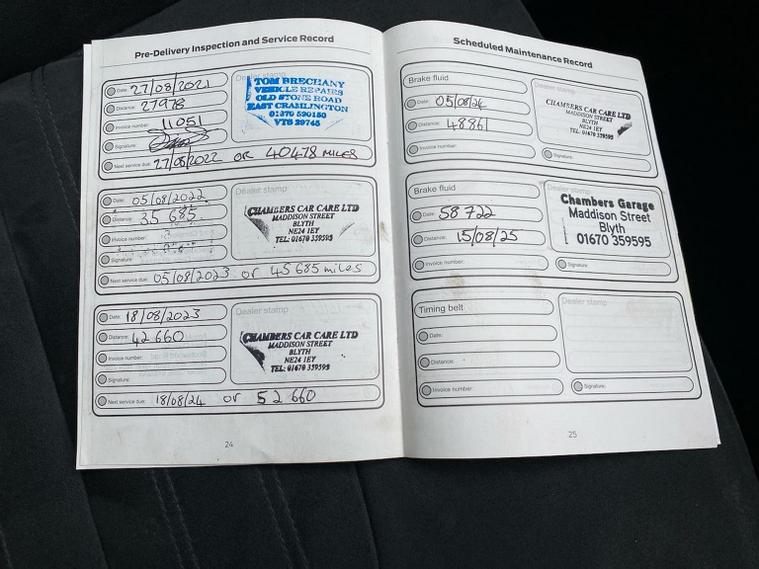 Pre-Delivery Inspection and Service Record
Date: 27/08/2021
Distance: 27978
Invoice number: 11051
Signature:
Next service due: 27/08/2022 OR 40478 MILES
Dealer stamp
TOM BRECHANY
VEHICLE REPAIRS
OLD STONE ROAD
EAST CRAMLINGTON
01670 590150
VTS 29745
Date: 05/08/2022
Distance: 35 685
Invoice number:
Signature:
Next service due: 05/08/2023 or 45685 miles
Dealer stamp
CHAMBERS CAR CARE LTD
MADDISON STREET
BLYTH
NE24 1EY
TEL: 01670 359595
Date: 18/08/2023
Distance: 42 660
Invoice number:
Signature:
Next service due: 18/08/24 or 52 660
Dealer stamp
CHAMBERS CAR CARE LTD
MADDISON STREET
BLYTH
NE24 1EY
TEL: 01670 359595
24
Scheduled Maintenance Record
Brake fluid
Date: 05/08/24
Distance: 48861
Invoice number:
Dealer stamp
CHAMBERS CAR CARE LTD
MADDISON STREET
BLYTH
NE24 1EY
TEL: 01670 359595
Signature:
Brake fluid
Date: 58 722
Distance: 15/08/25
Invoice number:
Dealer stamp
Chambers Garage
Maddison Street
Blyth
01670 359595
Signature:
Timing belt
Date:
Distance:
Invoice number:
Dealer stamp
Signature:
25